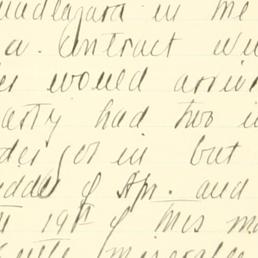 uadlajara in me
a. Contract wi
es would arriv
arty had two i
der got in but
iddle of Apr. and
19th of this m